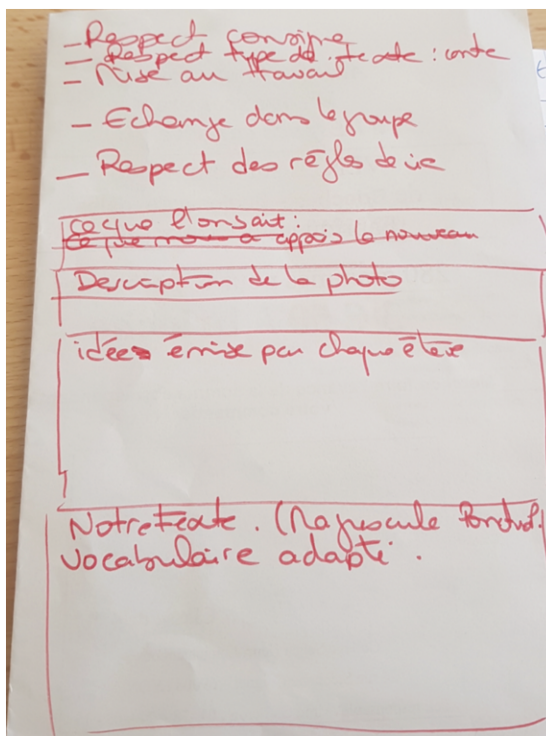 - Respect consigne
- Respect type de texte : conte
- Mise au travail
- Echange dans le groupe
- Respect des règles de vie
ce que l'on sait :
ce que nous a appris le nouveau
Description de la photo
idées émise par chaque élève
Notre texte. (Majuscule Ponctuat.
vocabulaire adapté.